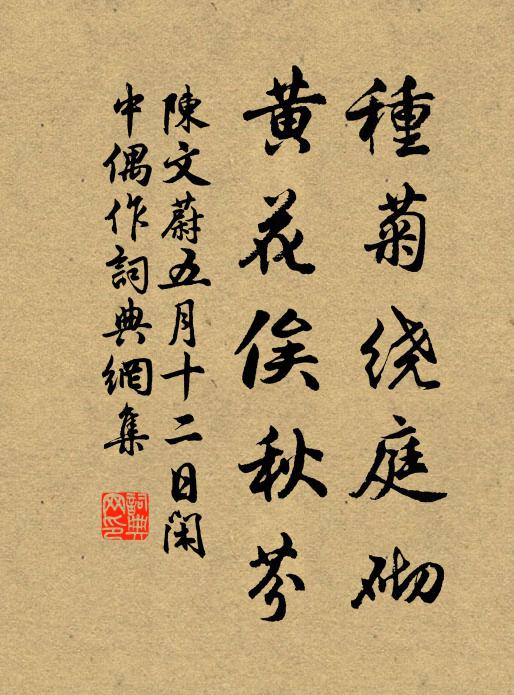 種菊绕庭砌
黄花俟秋芬
陳文蔚五月十二日閑
中偶作詞典網集
詞典
网印